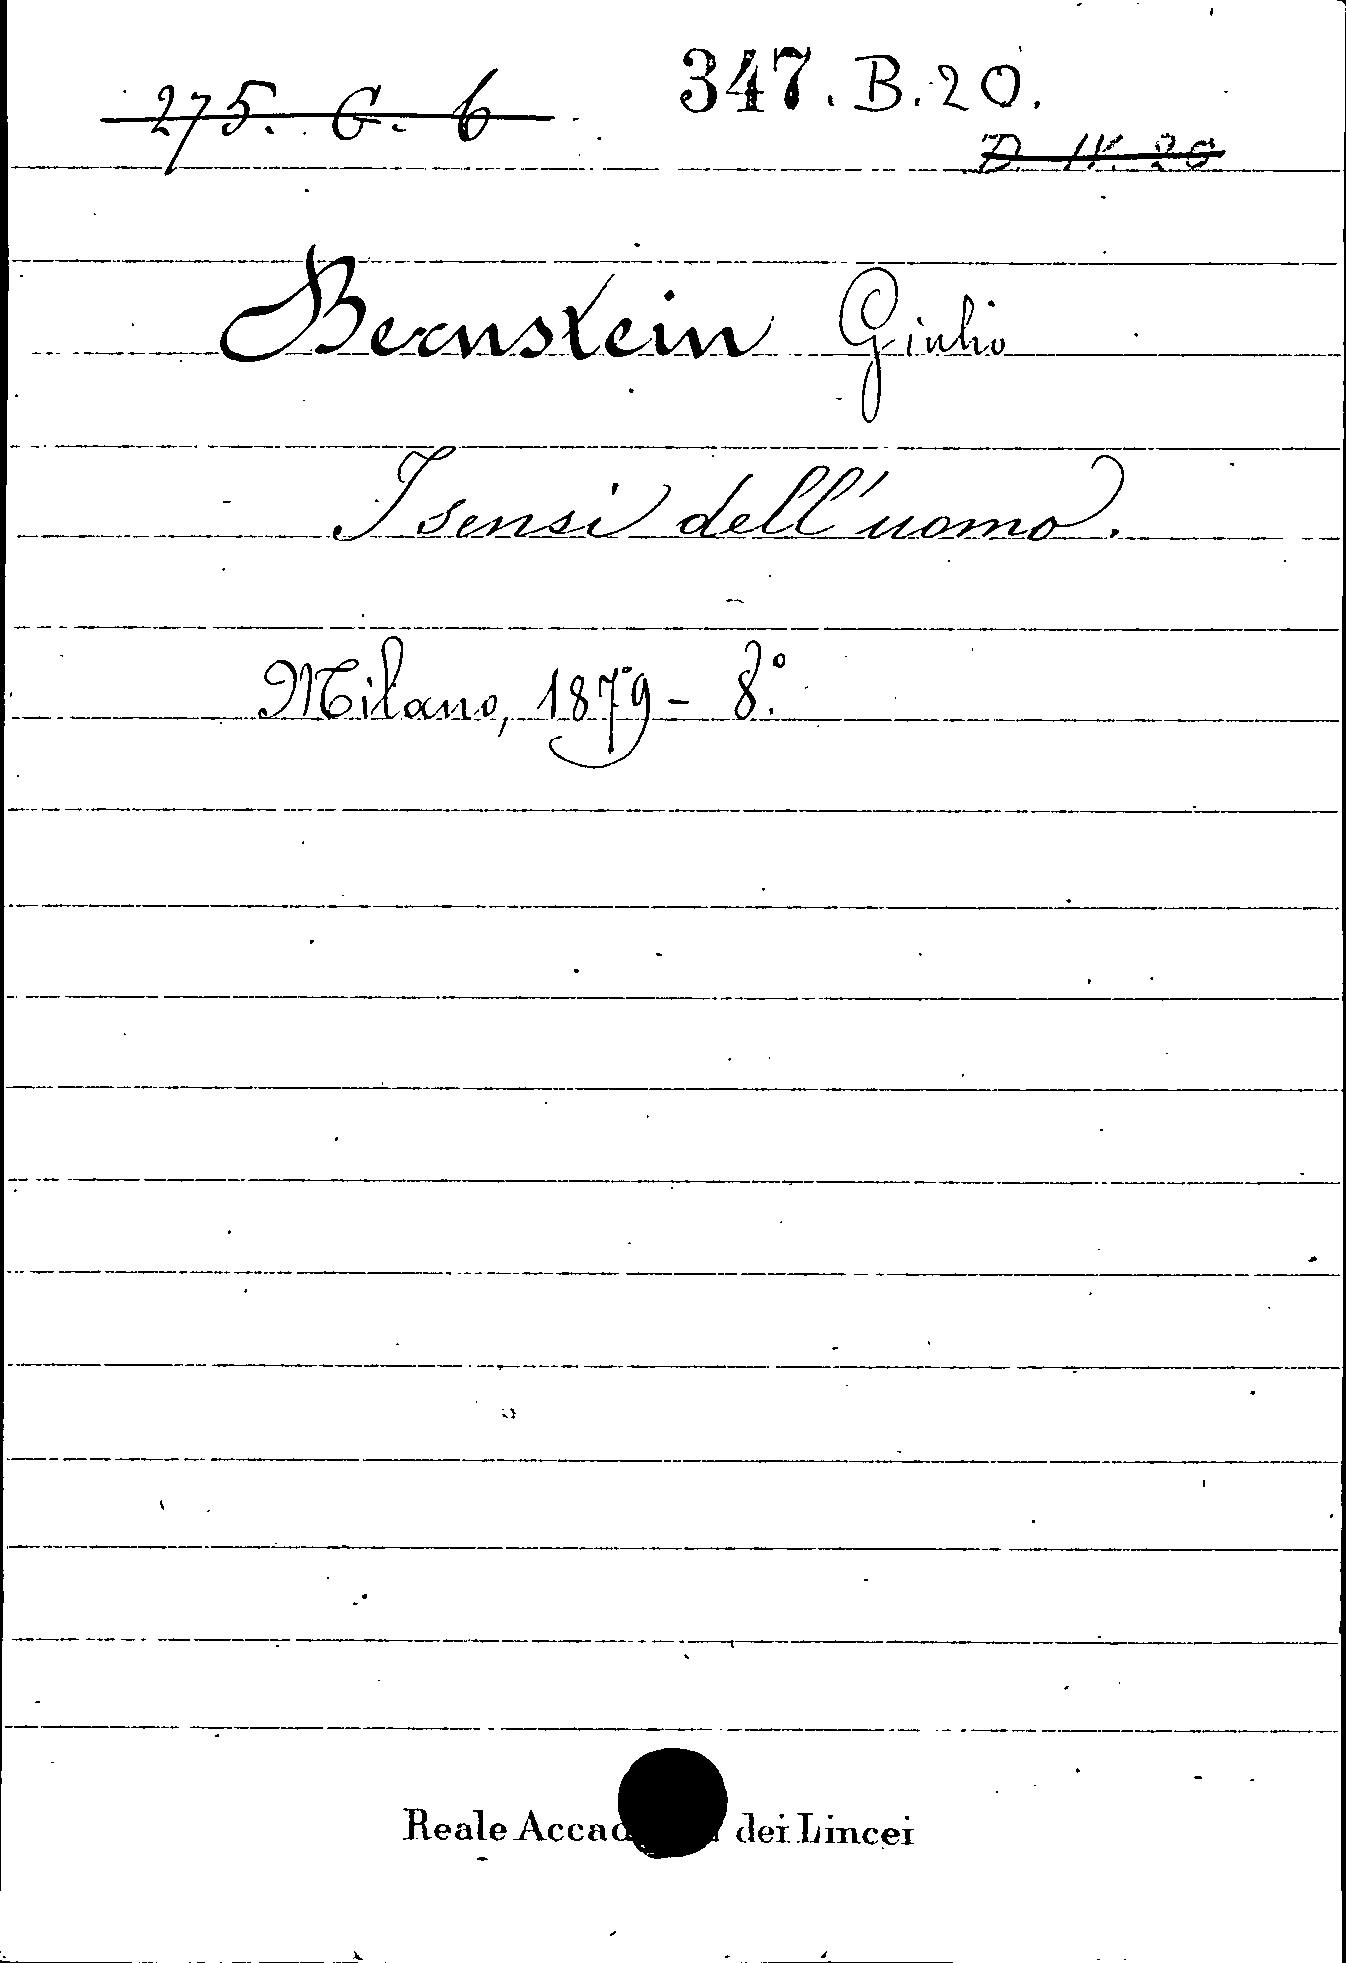 275. G. 6 347. B. 20.
D. IV. 20
Bernstein Giulio
I sensi dell'uomo.
Milano, 1879 - 8.°
Reale Accad dei Lincei